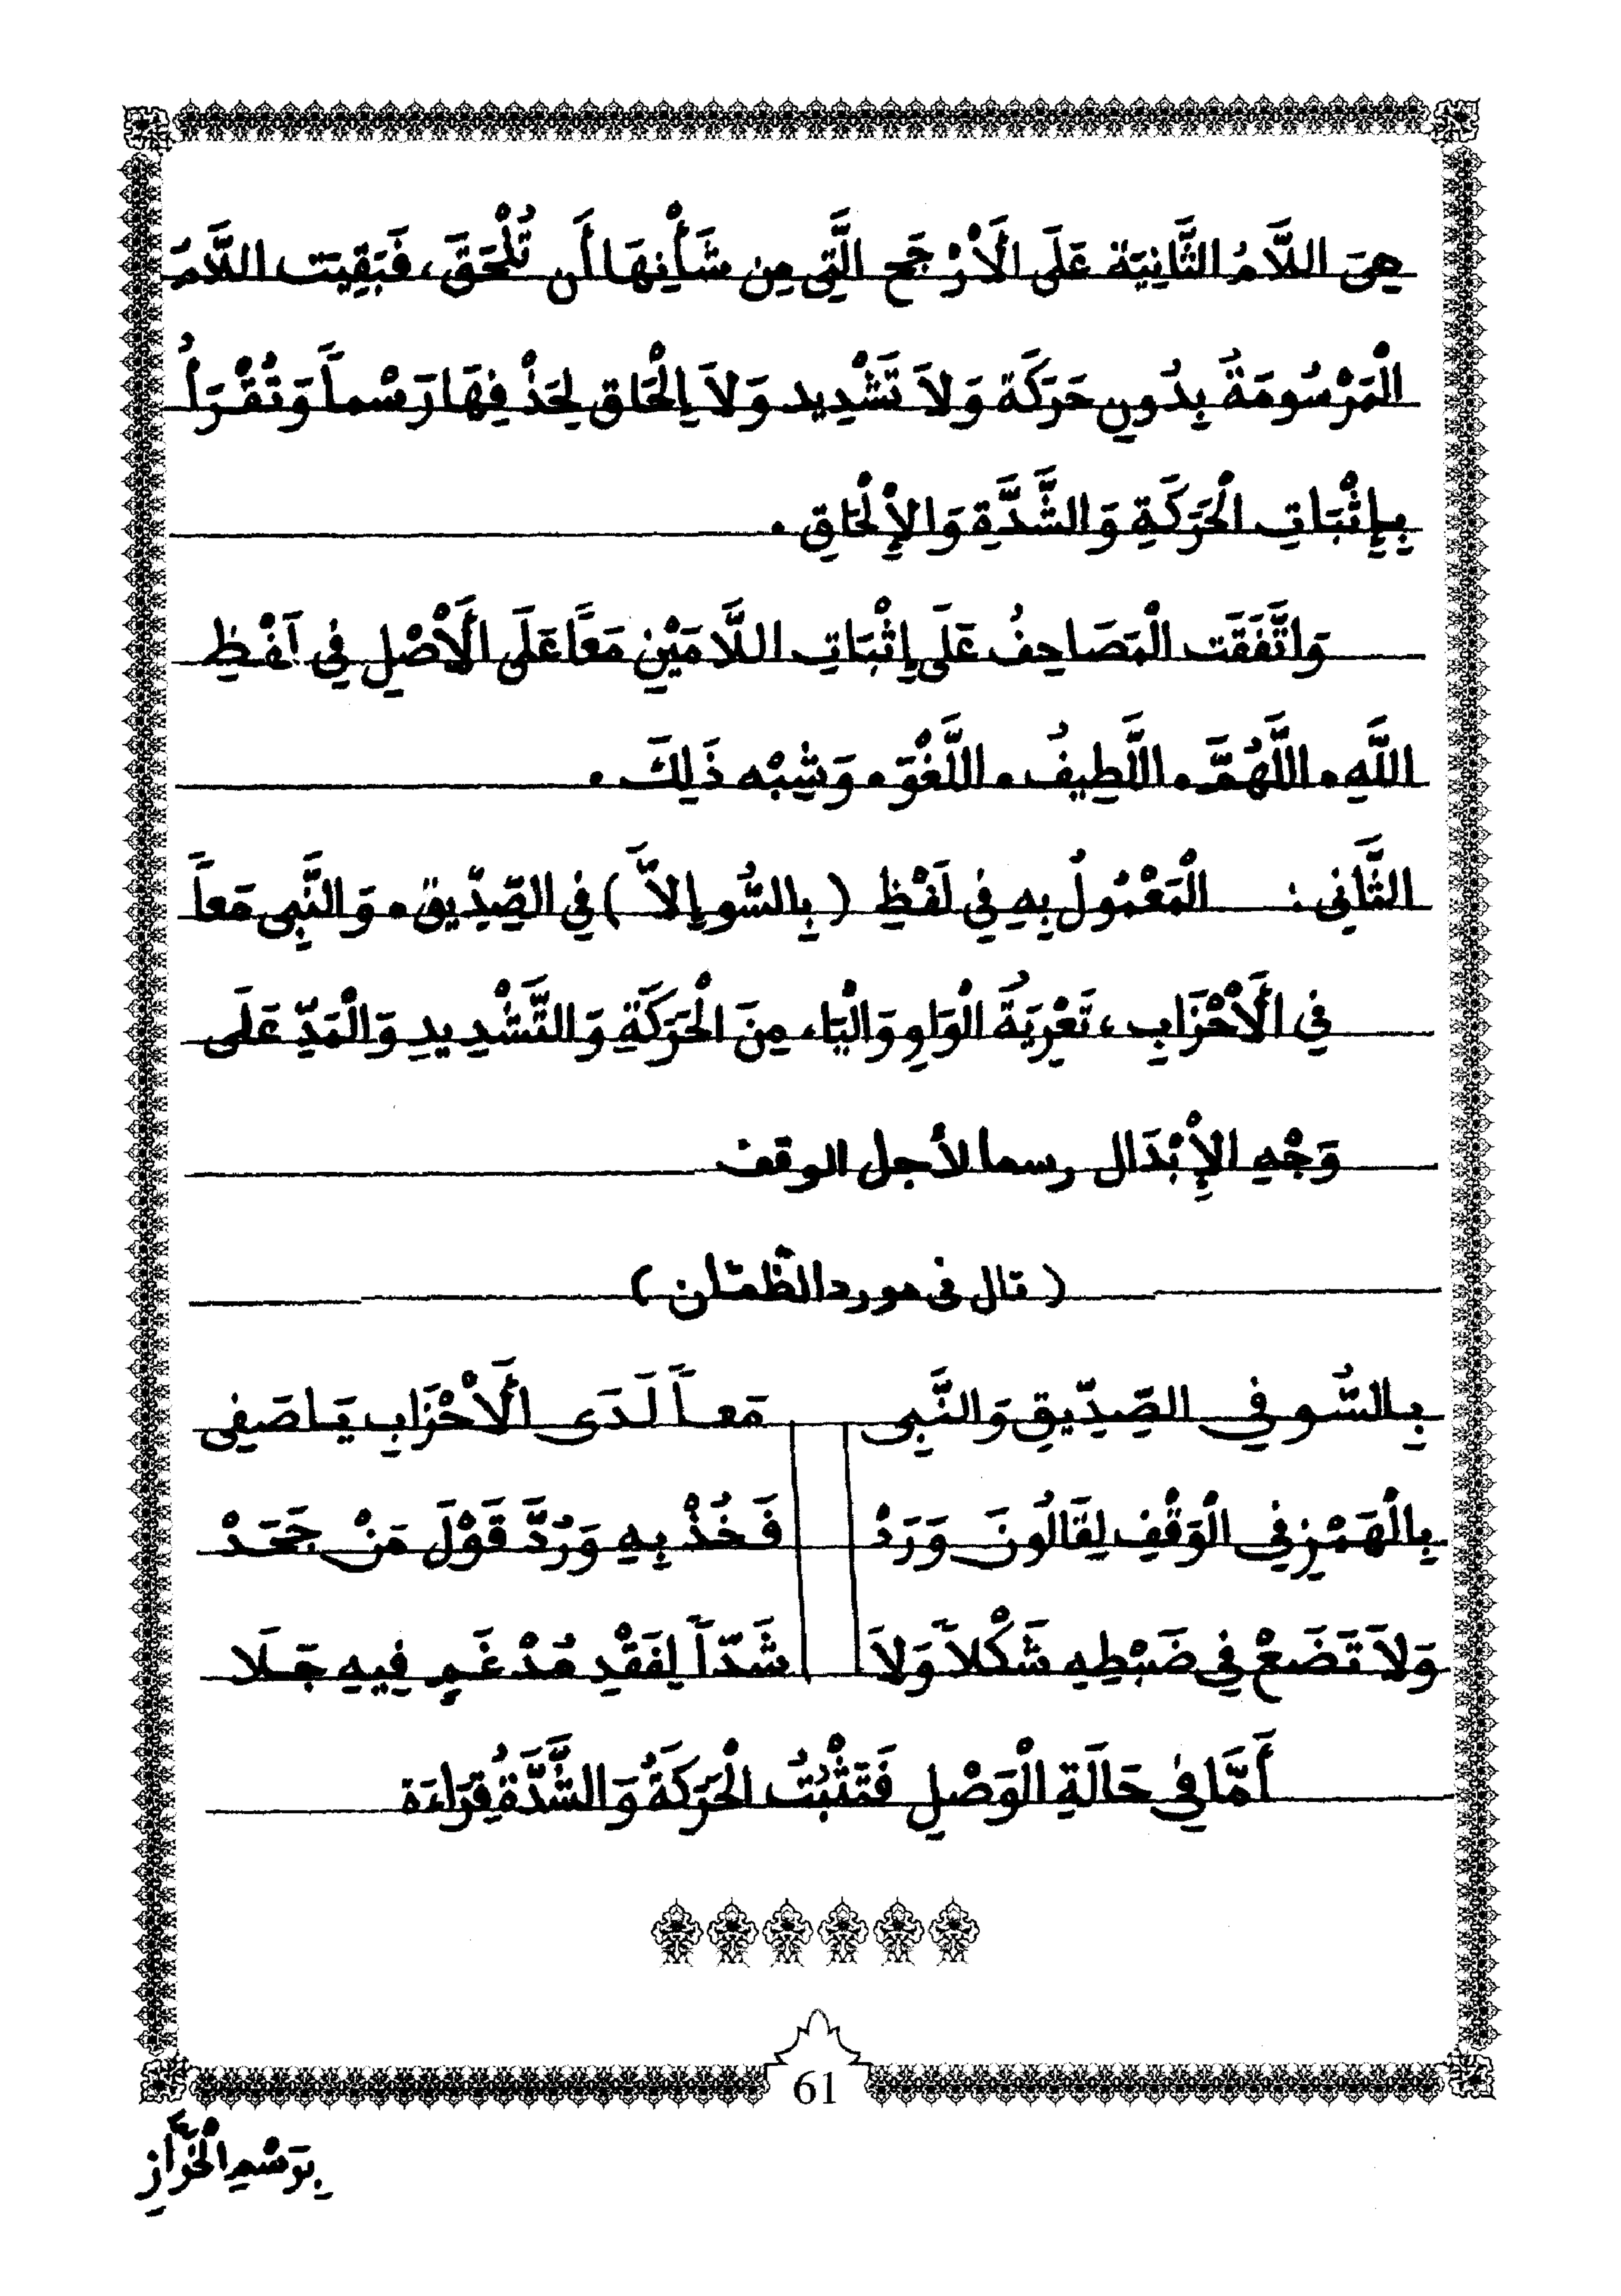 هِيَ اللَّامُ الثَّانِيَة عَلَى الَأرْجَح الَّتِي مِن شَأْنِهَا أَن تُلْحَقَ، فَبَقِيَت اللَّامُ
الْمَرْسُومَةُ بِدُونِ حَرَكَة وَلَا تَشْدِيد وَلَا إِلْحَاق لِحَذْفِهَا رَسْماً وَتُقْرَأُ
بِإِثْبَاتِ الْحَرَكَةِ وَالشَّدَّةِ وَالإِلْحَاقِ .
وَاتَّفَقَت الْمَصَاحِفُ عَلَى إِثْبَاتِ اللَّامَيْنِ مَعًا عَلَى الَأصْلِ فِي لَفْظِ
اللَّهِ . اللَّهُمَّ . اللَّطِيفُ . اللَّغْوَ . وَشِبْه ذَلِكَ .
الثَّانِي : الْمَعْمُولُ بِهِ فِي لَفْظِ ( بِالسُّو إِلاَّ ) فِي الصِّدِّيق . وَالنَّبِي مَعاً
فِي الَأحْزَابِ ، تَعْرِيَةُ الْوَاوِ وَالْيَاء مِنَ الْحَرَكَةِ وَالتَّشْدِيدِ وَالْمَدِّ عَلَى
وَجْهِ الإِبْدَال رسما لأجل الوقف
( قال في مورد الظمئان )
بِالسُّو فِي الصِّدِّيقِ وَالنَّبِي مَعاً لَدَى الَأحْزَابِ يَا صَفِي
بِالْهَمْزِ فِي الْوَقْفِ لِقَالُونَ وَرَدْ فَخُذْ بِهِ وَرُدَّ قَوْلَ مَنْ جَحَدْ
وَلَا تَضَعْ فِي ضَبْطِهِ شَكْلاً وَلَا شَدّاً لِفَقْدِ مُدْغَمٍ فِيهِ جَلَا
أَمَّا فِي حَالَةِ الْوَصْلِ فَتَثْبُتُ الْحَرَكَةُ وَالشَّدَّةُ قِرَاءَة
61
بِرَسْمِ الْخَرَّازِ